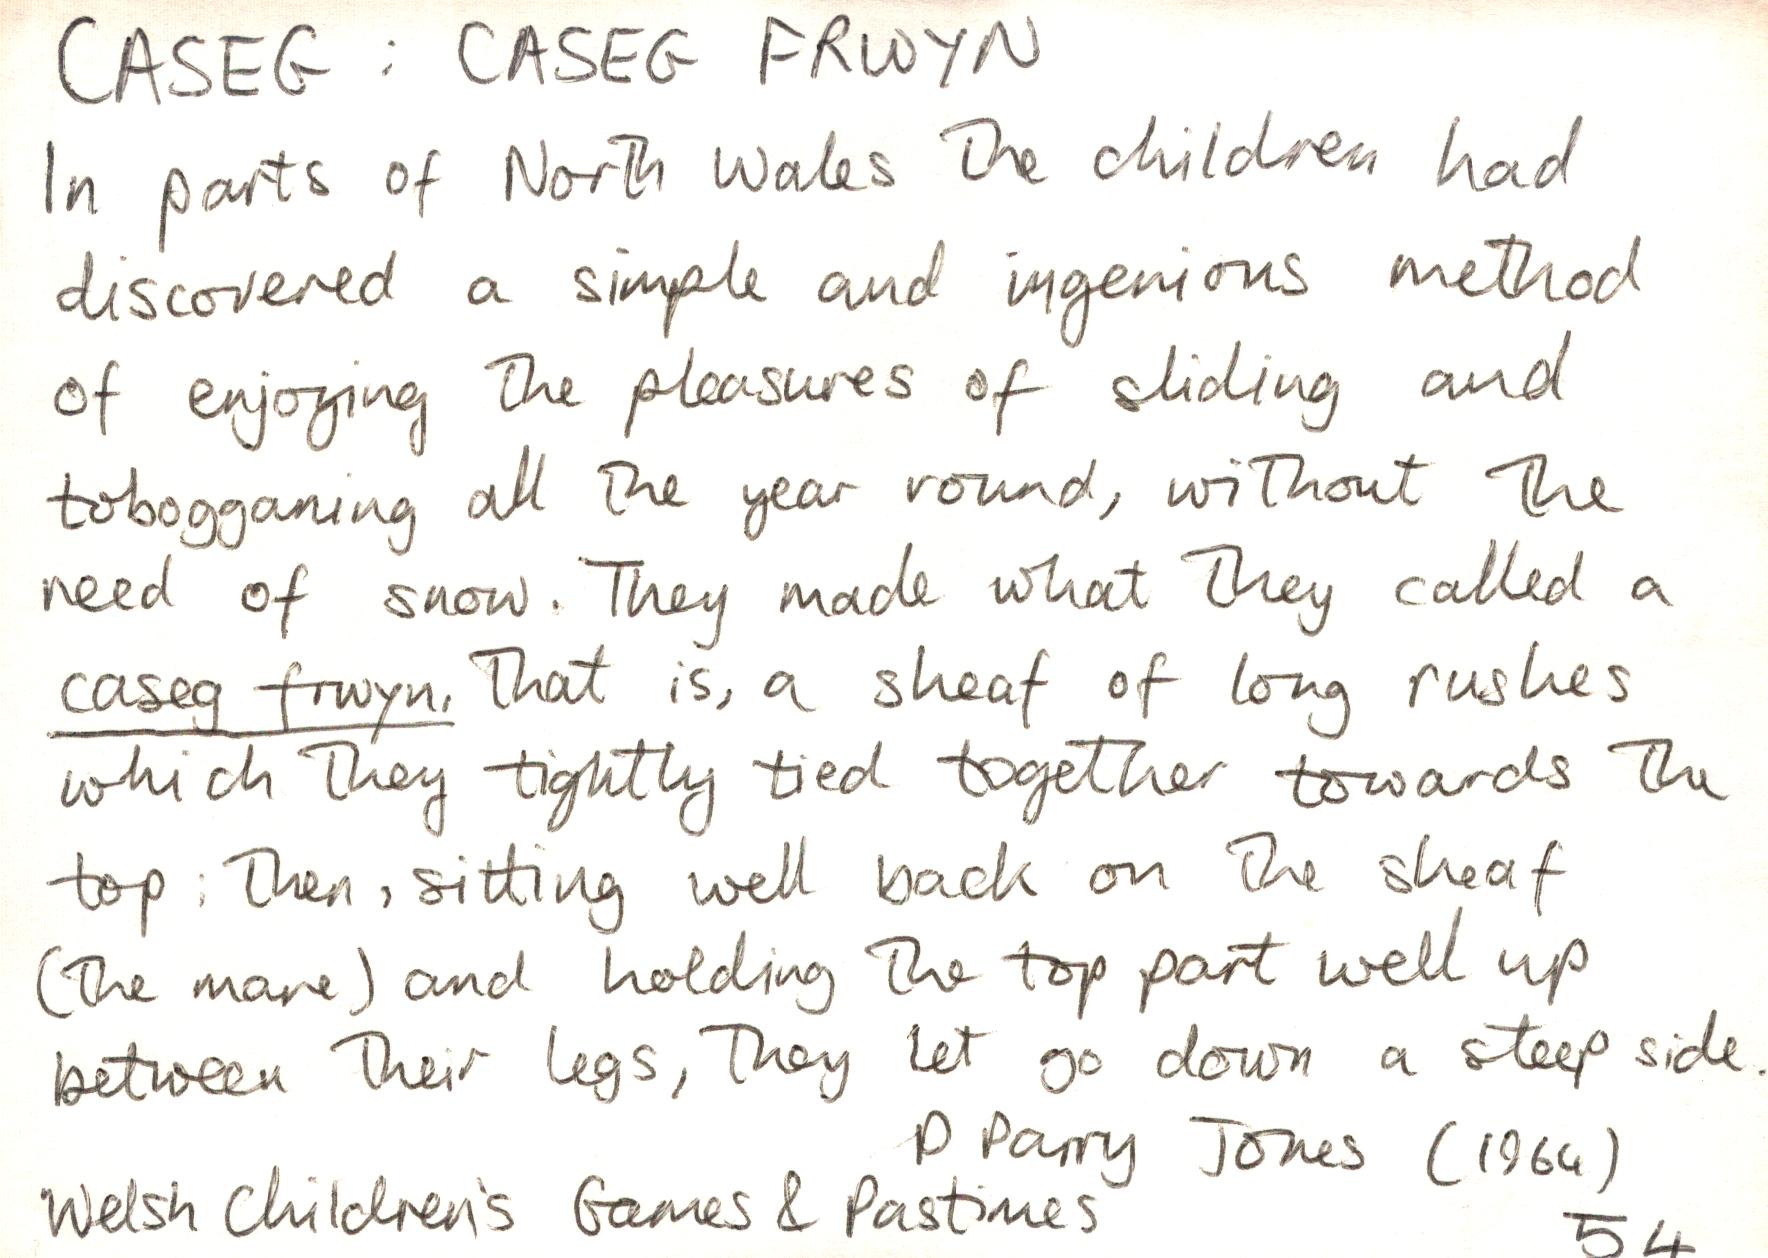 CASEG : CASEG FRWYN
In parts of North Wales the children had
discovered a simple and ingenious method
of enjoying the pleasures of sliding and
tobogganing all the year round, without the
need of snow. They made what they called a
caseg frwyn. That is, a sheaf of long rushes
which they tightly tied together towards the
top; then, sitting well back on the sheaf
(the mare) and holding the top part well up
between their legs, they let go down a steep side.
D Parry Jones (1964)
Welsh Children's Games & Pastimes
54